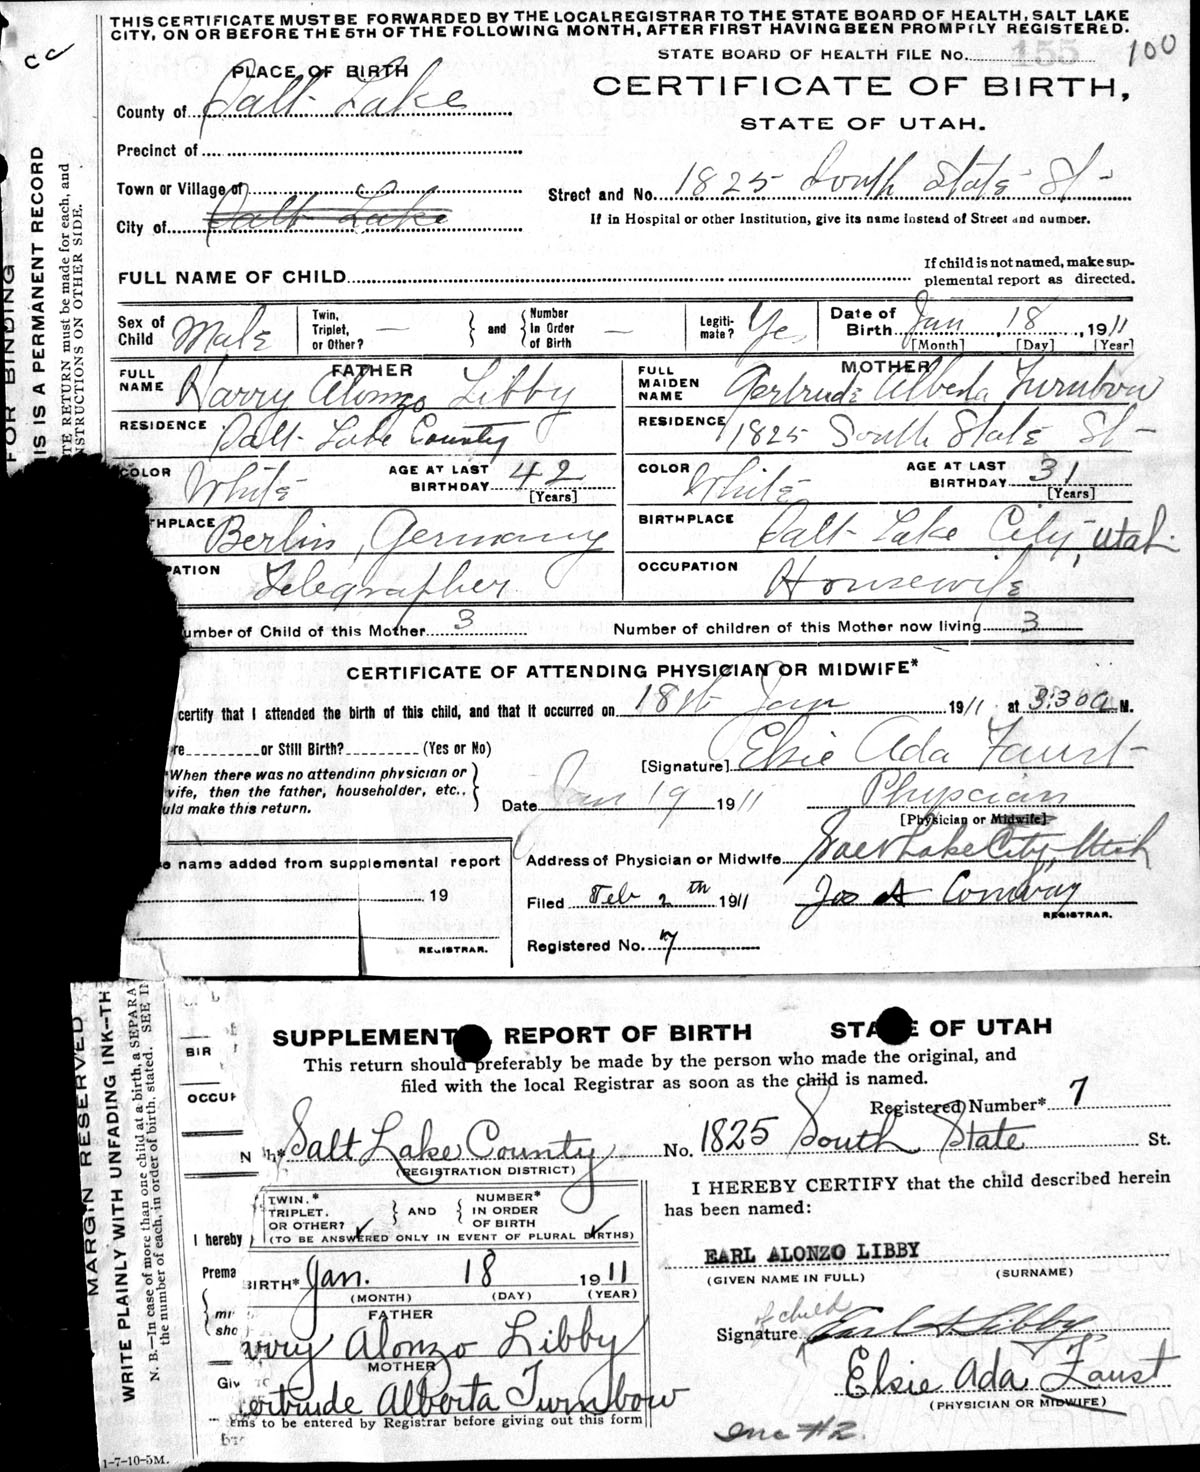 THIS CERTIFICATE MUST BE FORWARDED BY THE LOCAL REGISTRAR TO THE STATE BOARD OF HEALTH, SALT LAKE
CITY, ON OR BEFORE THE 5TH OF THE FOLLOWING MONTH, AFTER FIRST HAVING BEEN PROMPTLY REGISTERED.
cc
STATE BOARD OF HEALTH FILE No. 155 100
PLACE OF BIRTH
CERTIFICATE OF BIRTH,
County of Salt Lake
STATE OF UTAH.
Precinct of
Town or Village of
Street and No. 1825 South State St
City of Salt Lake
If in Hospital or other Institution, give its name instead of Street and number.
FULL NAME OF CHILD
If child is not named, make sup-
plemental report as directed.
Sex of Child Male
Twin, Triplet, or Other? —
and
Number in Order of Birth —
Legiti-mate? Yes
Date of Birth Jan 18, 1911
[Month] [Day] [Year]
FATHER
FULL NAME Harry Alonzo Libby
MOTHER
FULL MAIDEN NAME Gertrude Alberta Turnbow
RESIDENCE Salt Lake County
RESIDENCE 1825 South State St
COLOR White
AGE AT LAST BIRTHDAY 42 [Years]
COLOR White
AGE AT LAST BIRTHDAY 31 [Years]
THPLACE Berlin, Germany
BIRTHPLACE Salt Lake City, Utah.
PATION Telegrapher
OCCUPATION Housewife
umber of Child of this Mother 3
Number of children of this Mother now living 3
CERTIFICATE OF ATTENDING PHYSICIAN OR MIDWIFE*
certify that I attended the birth of this child, and that it occurred on 18th Jan 1911 at 3:30 a M.
re or Still Birth? (Yes or No)
[Signature] Elsie Ada Faust
*When there was no attending physician or
wife, then the father, householder, etc.,
uld make this return.
Date Jan 19 1911
Physcian
[Physician or Midwife]
e name added from supplemental report
Address of Physician or Midwife Salt Lake City, Utah
19
Filed Feb 2th 1911
Jos A Conway
REGISTRAR.
REGISTRAR.
Registered No. 7
FOR BINDING
IS IS A PERMANENT RECORD
TE RETURN must be made for each, and
NSTRUCTIONS ON OTHER SIDE.
SUPPLEMENT REPORT OF BIRTH STA E OF UTAH
This return should preferably be made by the person who made the original, and
filed with the local Registrar as soon as the child is named.
Registered Number* 7
Salt Lake County
(REGISTRATION DISTRICT)
No. 1825 South State St.
TWIN,* TRIPLET, OR OTHER?
AND
NUMBER* IN ORDER OF BIRTH
(TO BE ANSWERED ONLY IN EVENT OF PLURAL BIRTHS)
I HEREBY CERTIFY that the child described herein
has been named:
BIRTH* Jan. 18 1911
(MONTH) (DAY) (YEAR)
EARL ALONZO LIBBY
(GIVEN NAME IN FULL) (SURNAME)
FATHER
arry Alonzo Libby
of child
Signature Earl A Libby
MOTHER
ertrude Alberta Turnbow
Elsie Ada Faust
(PHYSICIAN OR MIDWIFE)
ems to be entered by Registrar before giving out this form
BIR
OCCUP
N
I hereby
Prema
mi
sho
Giv
MARGIN RESERVED
WRITE PLAINLY WITH UNFADING INK—TH
N. B.—In case of more than one child at a birth, a SEPARA
the number of each, in order of birth, stated. SEE IN
1-7-10-5M.